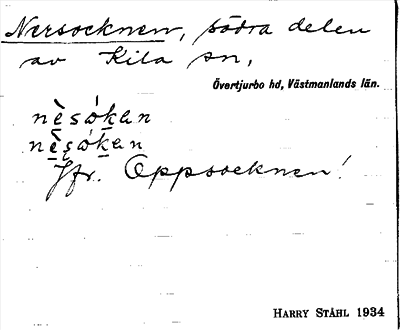 Nersocknen, södra delen
av Kila sn,
Övertjurbo hd, Västmanlands län.
nèsókan
nèsókan
Jfr. Oppsocknen!
HARRY STÅHL 1934